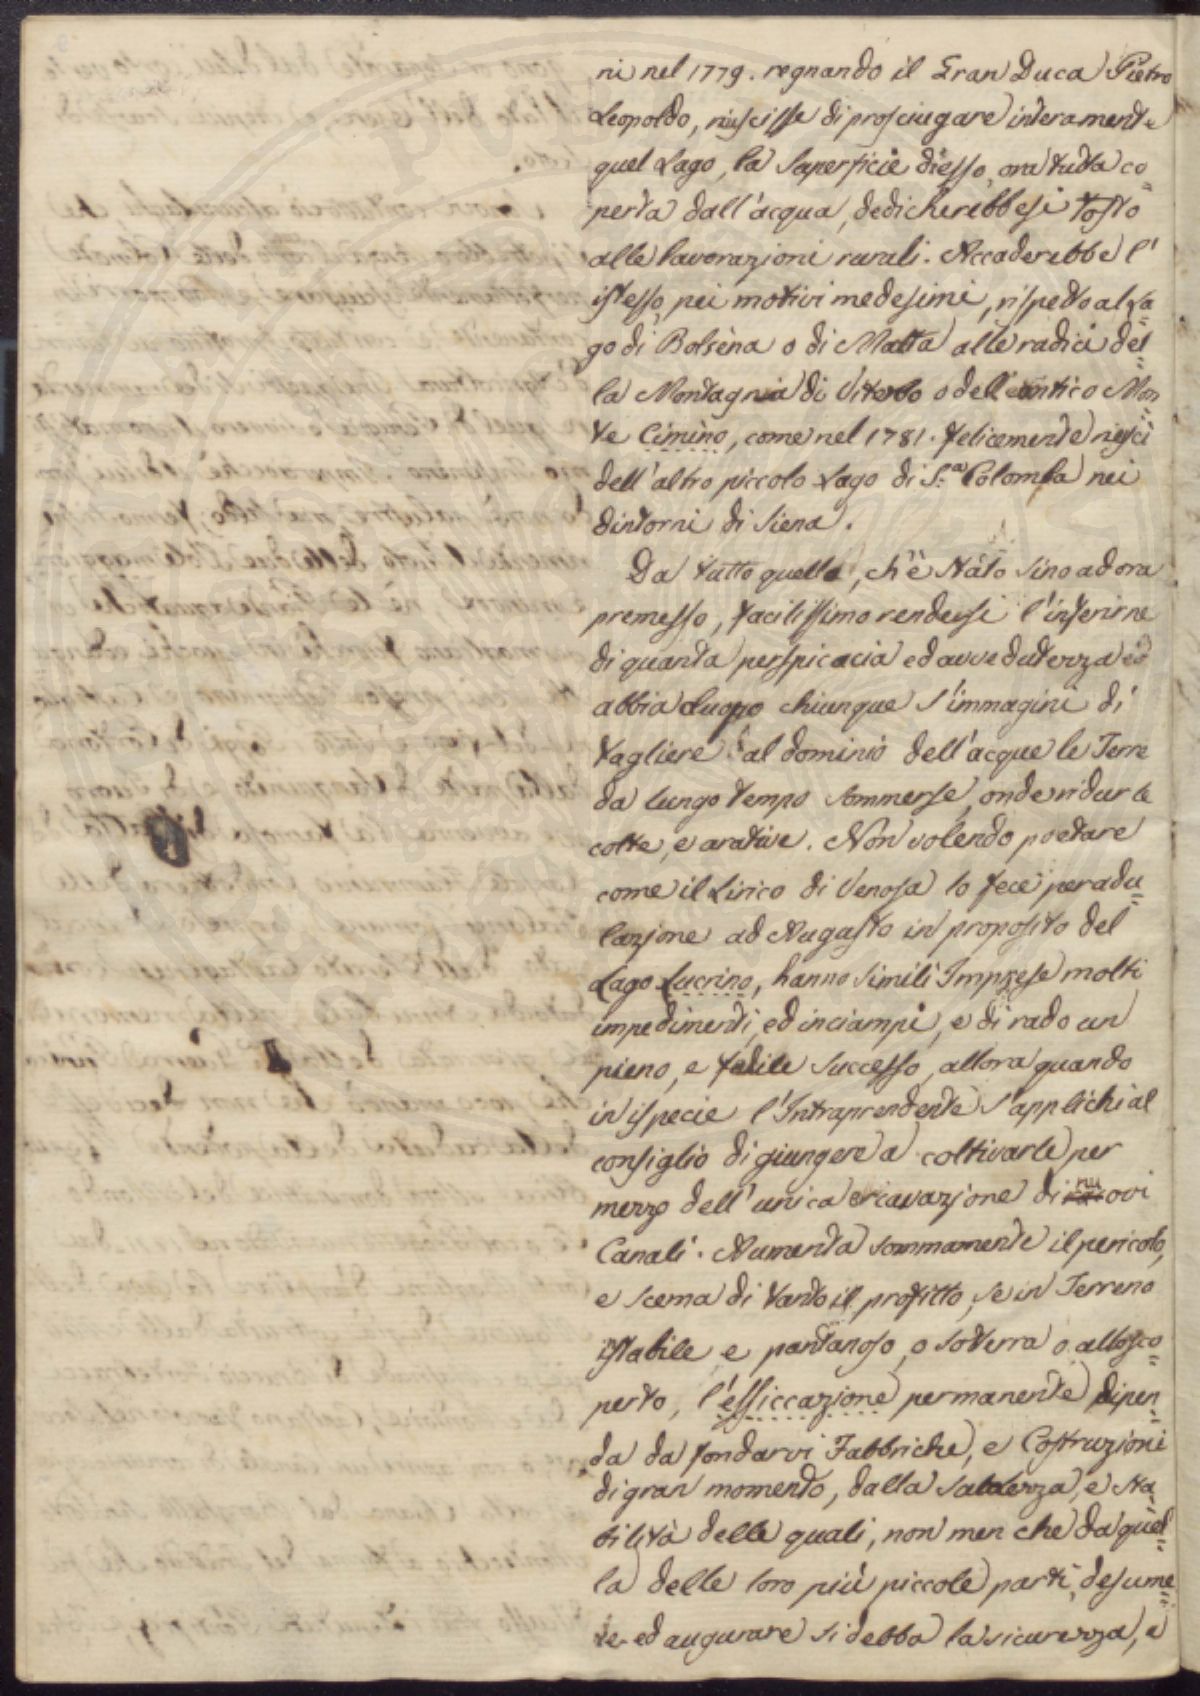 ni nel 1779. regnando il Gran Duca Pietro
Leopoldo, riuscisse di prosciugare interamente
quel Lago, la Superficie d'esso, ora tutta co=
perta dall'acqua, dedicherebbesi tosto
alle lavorazioni rurali. Accaderebbe l'
istesso, pei motivi medesimi, rispetto al La=
go di Bolsena o di Matta alle radici del=
la Montagna di Viterbo o dell'antico Mon=
te Cimino, come nel 1781. felicemente riuscì
dell'altro piccolo Lago di S.ª Colomba nei
dintorni di Siena.
Da tutto quello, ch'è stato sino ad ora
premesso, facilissimo rendesi l'inferirne
di quanta perspicacia ed avvedutezza
abbia luopo chiunque s'immagini di
tagliere al dominio dell'acque le Terre
da lungo tempo sommerse, onde ridurle
colte, e arative. Non volendo poetare
come il Lirico di Venosa lo fece per adu=
lazione ad Augusto in proposito del
Lago Lucrino, hanno simili Imprese molti
impedimenti, ed inciampi, e di rado un
pieno, e felice successo, allora quando
in ispecie l'Intraprendente s'applichi al
consiglio di giungere a coltivarle per
mezzo dell'unica escavazione di nuovi
Canali. Aumenta sommamente il pericolo,
e scema di tanto il profitto, se in Terreno
istabile e pantanoso, o sotterra o allo sco=
perto, l'essiccazione permanente dipen=
da da fondarvi Fabbriche, e Costruzioni
di gran momento, dalla saldezza, e sta=
bilità delle quali, non men che da quel=
la delle loro più piccole parti, desume=
re ed augurare si debba la sicurezza, e